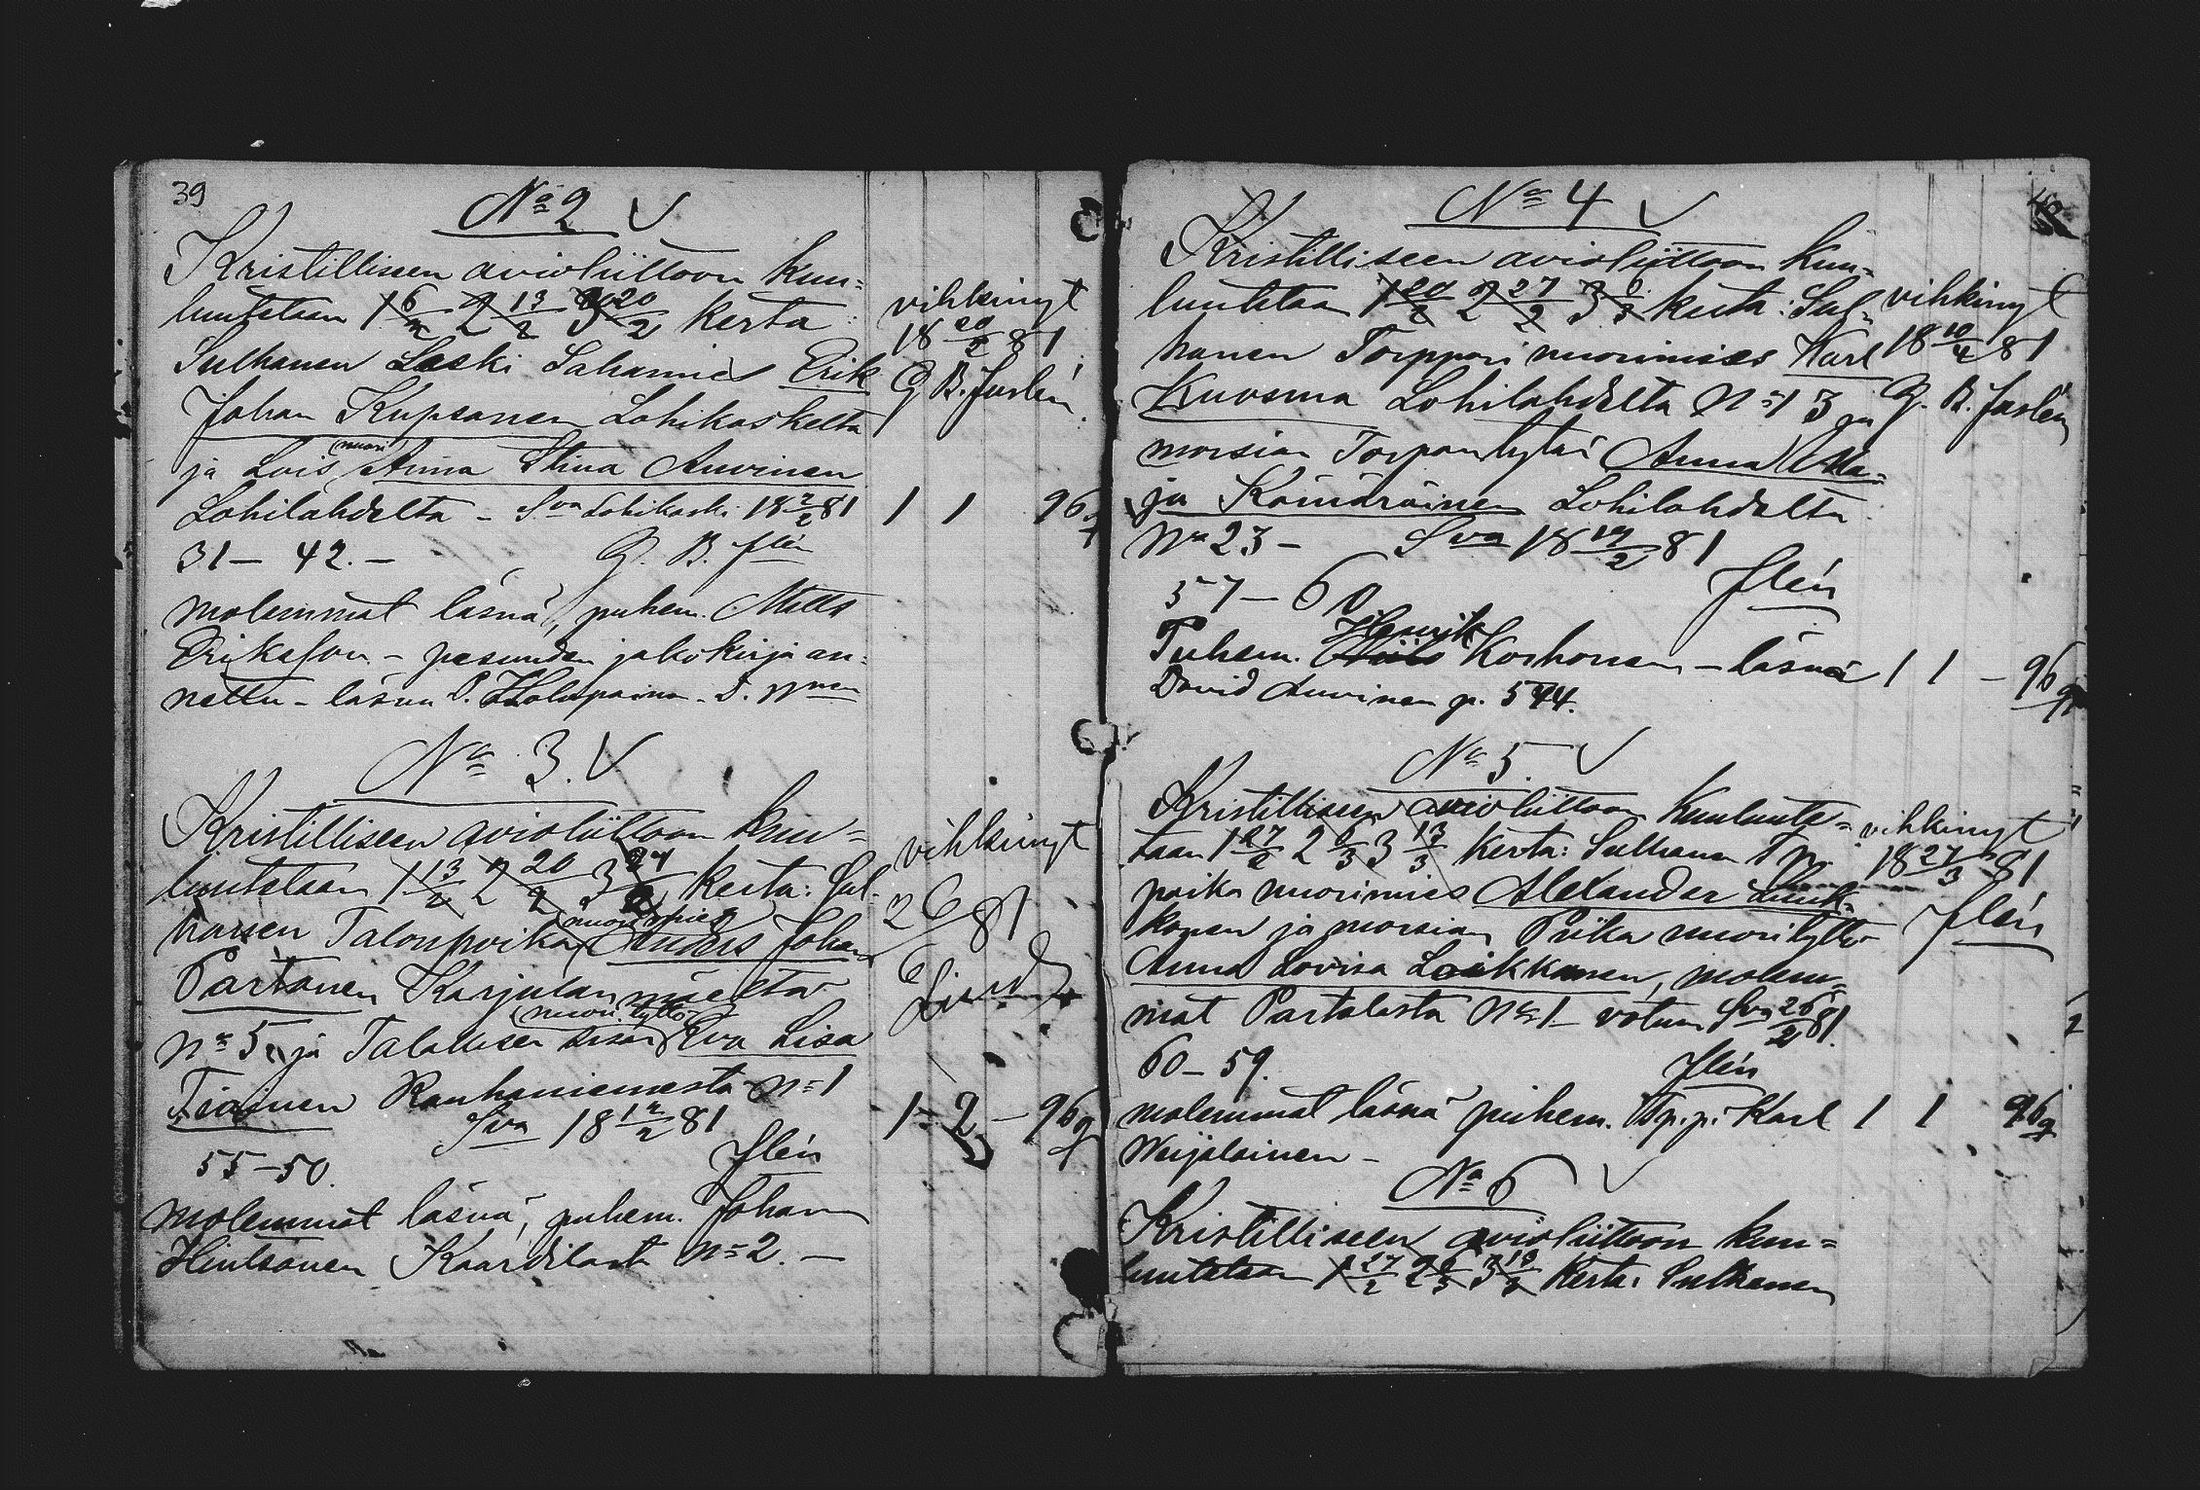 39
No 2
Kristilliseen avioliittoon kuu=
lutetaan 1 6/2 2 13/2 3 20/2 kerta:
Sulhanen Leski Sahamies Erik
Johan Kupsanen Lohikoskelta
ja Lois nuori Anna Stina Auvinen
Lohilahdelta - Sva Lohikoski 18 2/2 81
31 - 42. -
G. B. Jlén
molemmat läsnä, puhem. Matts
Eriksson - pesunden jakokirja an=
nettu - läsnä P. Holopainen
vihkinyt
18 20/2 81
G. B. Juslén
1 1 96
No 3.
Kristilliseen avioliittoon kuu=
lutetaan 1 13/2 2 20/2 3 27/2 kerta: Sul=
hanen Talonpoika nuorimies Anders Johan
Partanen Karjulanmäelta
No 5, ja Talollisen sisar nuori tyttö Eva Lisa
Tiainen Rauhaniemestä No 1
Sva 18 12/2 81
55-50.
Jlén
molemmat läsnä, puhem. Johan
Hintsanen Kaartilast No 2. -
vihkinyt
Lind
1 - 2 - 96
No 4
Kristilliseen avioliittoon kuu=
lutetaan 1 20/2 2 27/2 3 6/3 kerta: Sul=
hanen Torppari nuorimies Karl
Kuosma Lohilahdelta No 13 ja
morsian Torparitytär Anna Ma=
ja Kämäräinen Lohilahdelta
No 23 - Sva 18 19/2 81
57 - 60
Jlén
Puhem. Henrik Korhonen - läsnä
David Auvinen p. 544.
vihkinyt
18 10/4 81
G. B. Juslén
1 1 - 96
No 5.
Kristilliseen avioliittoon Kuulute=
taan 1 27/2 2 6/3 3 13/3 kerta: Sulhanen Tp.
poika nuorimies Alexander Luuk=
konen ja morsian Piika nuorityttö
Anna Lovisa Loikkanen, molem=
mat Partalasta No 1 - votum Sva 26/2 81.
60 - 59.
Jlén
molemmat läsnä puhem. Tp.p. Karl
Weijalainen -
vihkinyt
18 27/3 81
Jlén
1 1 96
No 6
Kristilliseen avioliittoon kuu=
lutetaan 1 27/2 2 6/3 3 13/3 Kerta: Sulhanen